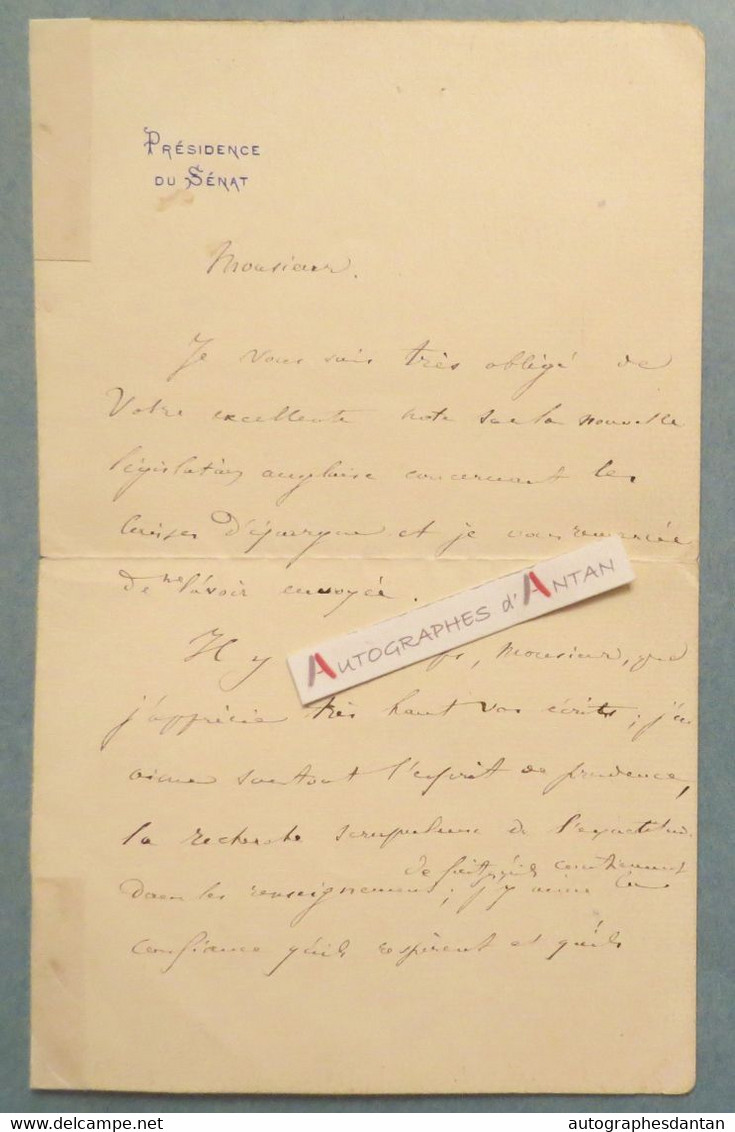 PRÉSIDENCE
DU SÉNAT
Monsieur.
Je vous suis très obligé de
Votre excellente note sur la nouvelle
législation anglaise concernant les
caisses d'épargne et je vous remercie
de me l'avoir envoyée.
AUTOGRAPHES d'ANTAN
Il y, Monsieur, que
j'apprécie très haut vos écrits; j'en
aime surtout l'esprit de prudence,
la recherche scrupuleuse de l'exactitude
de faits qu'ils contiennent
dans les renseignements; j'y aime la
confiance qu'ils respirent et qu'ils
delcampe.net
autographesdantan